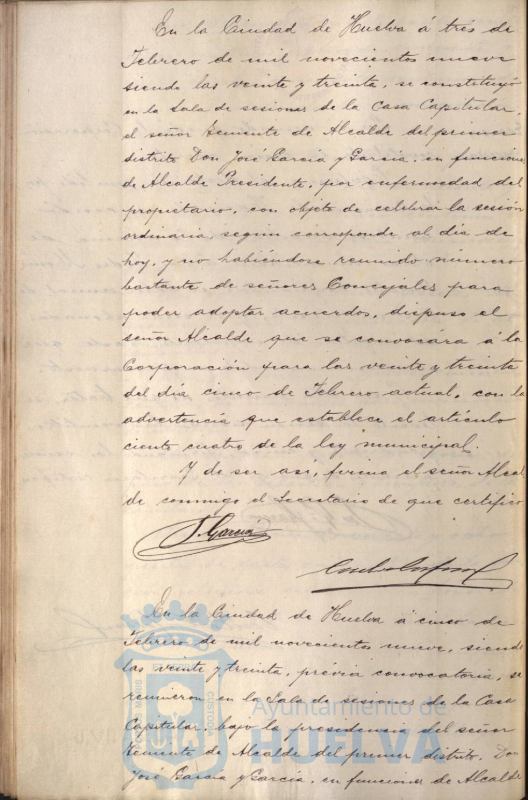 En la Ciudad de Huelva á tres de
Febrero de mil novecientos nueve
siendo las veinte y treinta, se constituyó
en la Sala de sesiones de la Casa Capitular,
el señor Teniente de Alcalde del primer
distrito Don José García y García, en funciones
de Alcalde Presidente, por enfermedad del
propietario, con objeto de celebrar la sesión
ordinaria, según corresponde al dia de
hoy, y no habiéndose reunido número
bastante de señores Concejales para
poder adoptar acuerdos, dispuso el
señor Alcalde que se convocára á la
Corporación para las veinte y treinta
del dia cinco de Febrero actual, con la
advertencia que establece el artículo
ciento cuatro de la ley municipal.
Y de ser así, firma el señor Alcal
de conmigo el Secretario de que certifico
J. García
En la Ciudad de Huelva á cinco de
Febrero de mil novecientos nueve, siendo
las veinte y treinta, prévia convocatoria, se
reunieron en la Sala de sesiones de la Casa
Capitular, bajo la presidencia del señor
Teniente de Alcalde del primer distrito, Don
José García y García, en funciones de Alcalde
Ayuntamiento de
HUELVA